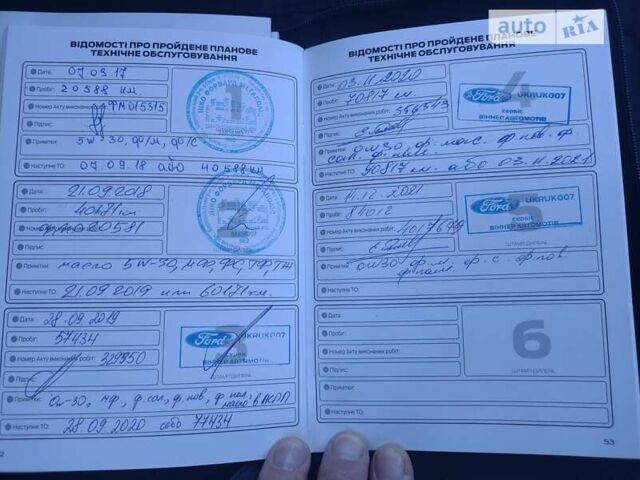 auto RIA
ВІДОМОСТІ ПРО ПРОЙДЕНЕ ПЛАНОВЕ
ТЕХНІЧНЕ ОБСЛУГОВУВАННЯ
Дата: 07 03 17
Пробіг: 20588 км
Номер Акту виконаних робіт: ФМ015315
Підпис:
Примітки: 5w-30, ф/м, ф/с
Наступне ТО: 07.09.18 або 40588 км
1
Дата: 21.09.2018
Пробіг: 40171 км
Номер Акту виконаних робіт:
Підпис:
Примітки: масло 5W-30, МФ, ФС, ТФ, ТЖ
Наступне ТО: 21.09.2019 или 60171 км.
2
Дата: 28.09.2019
Пробіг: 57434
Номер Акту виконаних робіт: 329350
Підпис:
Примітки: 0w-30, мф, ф.сал, ф.пов, ф.пал,
масло в АКПП
Наступне ТО: 28.09.2020 або 77434
3
Ford UKRUK007
ВІННЕР АВТОМОТІВ
ШТАМП ДИЛЕРА
ВІДОМОСТІ ПРО ПРОЙДЕНЕ ПЛАНОВЕ
ТЕХНІЧНЕ ОБСЛУГОВУВАННЯ
Дата: 03.11.2020
Пробіг: 70817 км.
Номер Акту виконаних робіт: 366543
Підпис:
Примітки: 0w30, ф.мас. ф.пов. ф
сал. ф.пал.
Наступне ТО: 90817 км. або 03.11.2021
4
Ford UKRUK007
сервіс
ВІННЕР АВТОМОТІВ
Дата: 11.12.2021
Пробіг: 84012
Номер Акту виконаних робіт: 4017699
Підпис:
Примітки: 0w30 ф.м. ф.с. ф.пов.
ф.пал.
Наступне ТО:
5
Ford UKRUK007
сервіс
ВІННЕР АВТОМОТІВ
ШТАМП ДИЛЕРА
Дата:
Пробіг:
Номер Акту виконаних робіт:
Підпис:
Примітки:
Наступне ТО:
6
ШТАМП ДИЛЕРА
2
53